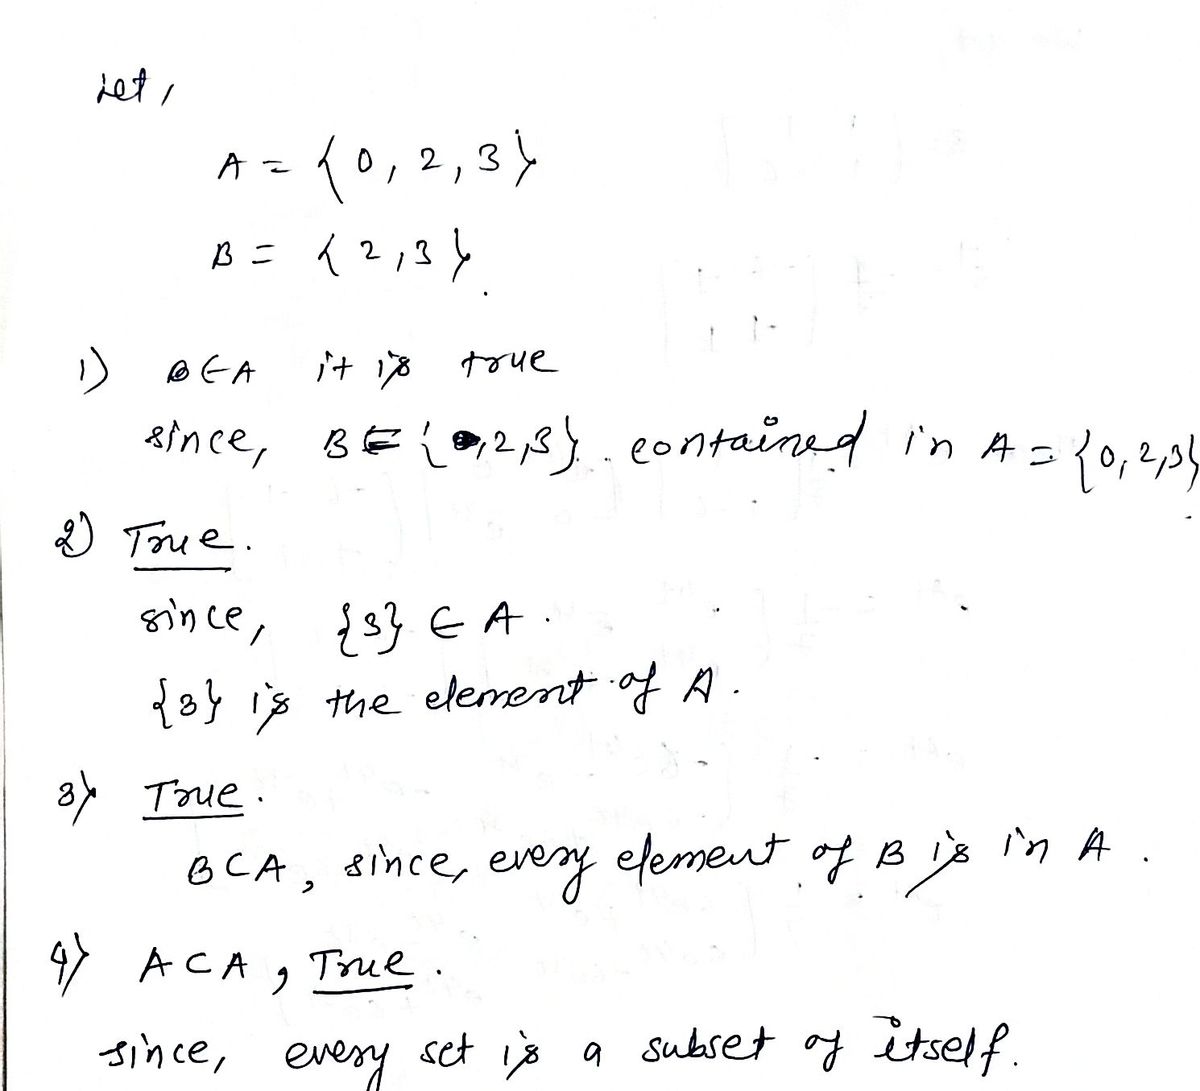 Let,
A = {0, 2, 3}
B = {2, 3}.
1) B ∈ A it is true
since, B = {2, 3} contained in A = {0, 2, 3}.
2) True.
since, {3} ∈ A.
{3} is the element of A.
3) True.
B ⊂ A, since, every element of B is in A.
4) A ⊂ A, True.
since, every set is a subset of itself.